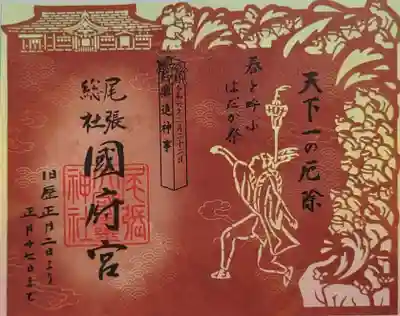 天下一の厄除
春を呼ぶ
はだか祭
儺追神事
尾張
総社
國府宮
旧暦正月二日より
正月十七日まで